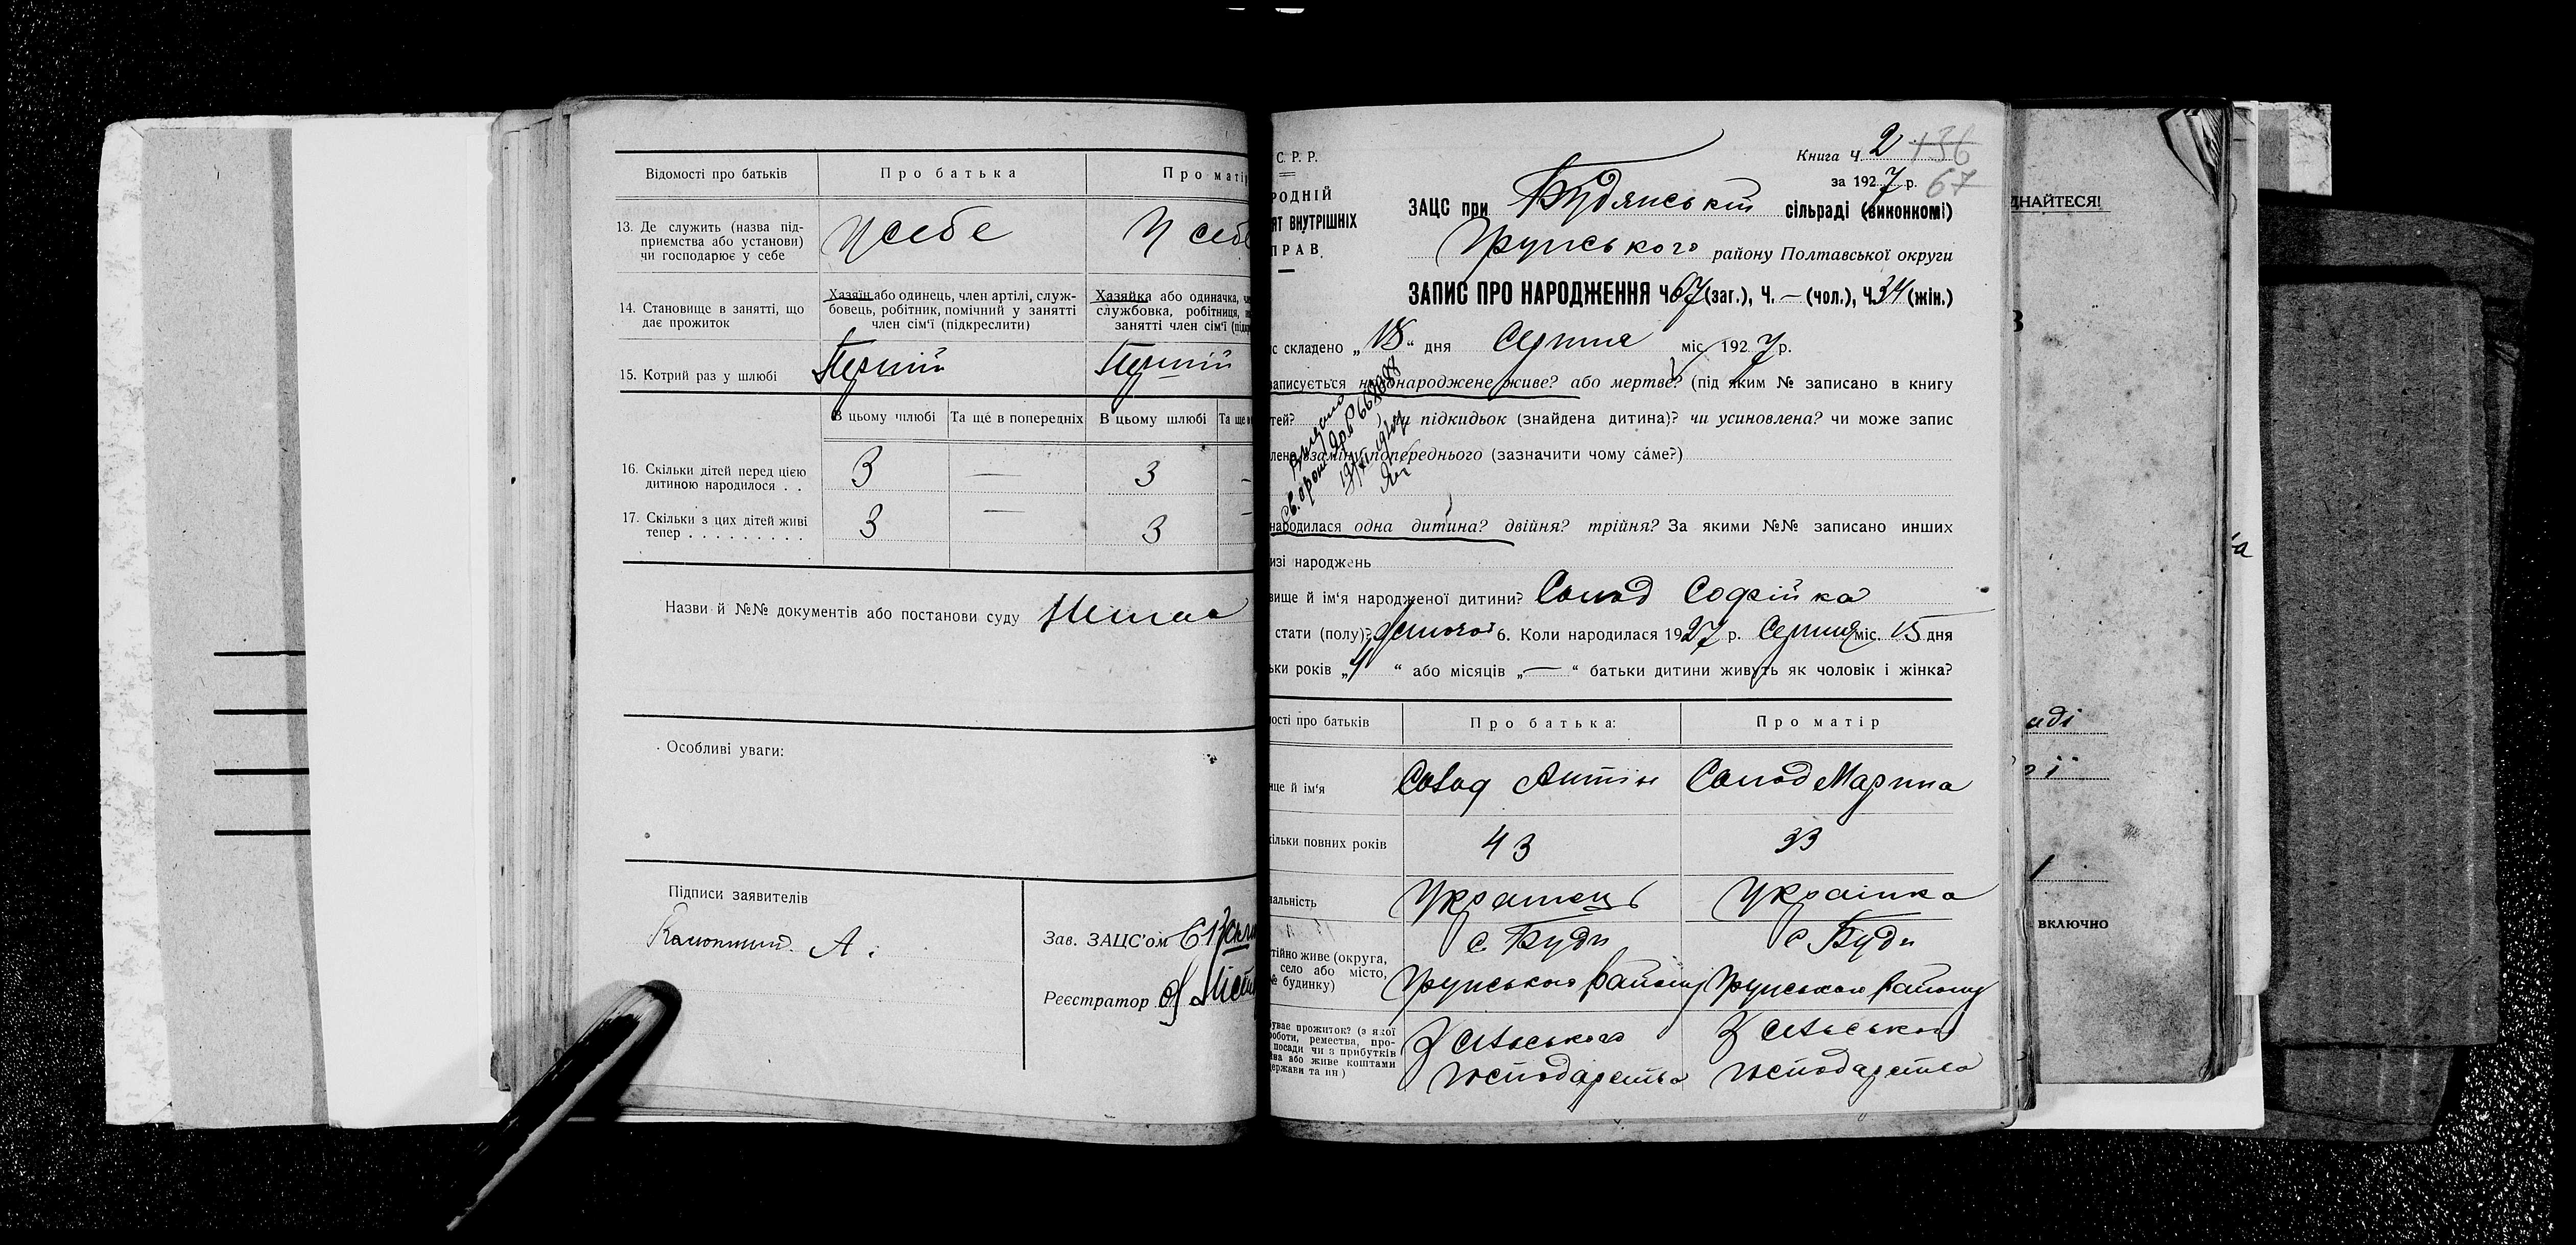 Відомості про батьків
Про батька
Про матір
13. Де служить (назва під-
приємства або установи)
чи господарює у себе
У себе
У себе
14. Становище в занятті, що
дає прожиток
Хазяїн або одинець, член артілі, служ-
бовець, робітник, помічний у занятті
член сім'ї (підкреслити)
Хазяйка або одиначка,
службовка, робітниця,
занятті член сім'ї
15. Котрий раз у шлюбі
Перший
Перший
В цьому шлюбі
Та ще в попередніх
В цьому шлюбі
Та ще
16. Скільки дітей перед цією
дитиною народилося . .
3
—
3
17. Скільки з цих дітей живі
тепер . . . . . . . . .
3
—
3
Назви й №№ документів або постанови суду Немає
Особливі уваги:
Підписи заявителів
А.
Зав. ЗАЦС'ом
Реєстратор
С. Р. Р.
РОДНІЙ
ЯТ ВНУТРІШНІХ
ПРАВ.
Книга Ч. 2 136
за 1927 р. 67
ЗАЦС при Будянській сільраді (виконкомі)
Грунського району Полтавської округи
ЗАПИС ПРО НАРОДЖЕННЯ Ч 67 (заг.), Ч. — (чол.), Ч. 34 (жін.)
с складено „18“ дня Серпня міс. 1927 р.
записується новонароджене живе? або мертве? (під яким № записано в книгу
тей? ) чи підкидьок (знайдена дитина)? чи усиновлена? чи може запис
лено взамін попереднього (зазначити чому саме?)
народилася одна дитина? двійня? трійня? За якими №№ записано инших
изі народжень
вище й ім'я народженої дитини? Солод Софійка
стати (полу)? жіночої 6. Коли народилася 1927 р. Серпня міс. 15 дня
ьки років „4“ або місяців „—“ батьки дитини живуть як чоловік і жінка?
ості про батьків
Про батька:
Про матір
ще й ім'я
Солод Антін
Солод Марина
кільки повних років
43
33
альність
Українець
Українка
тійно живе (округа,
село або місто,
№ будинку)
с. Буди
Грунського району
с. Буди
Грунського району
уває прожиток? (з якої
роботи, ремества, про-
посади чи з прибутків
йва або живе коштами
держави та ин.)
З сільського
господарства
З сільського
господарства
ДНАЙТЕСЯ!
включно